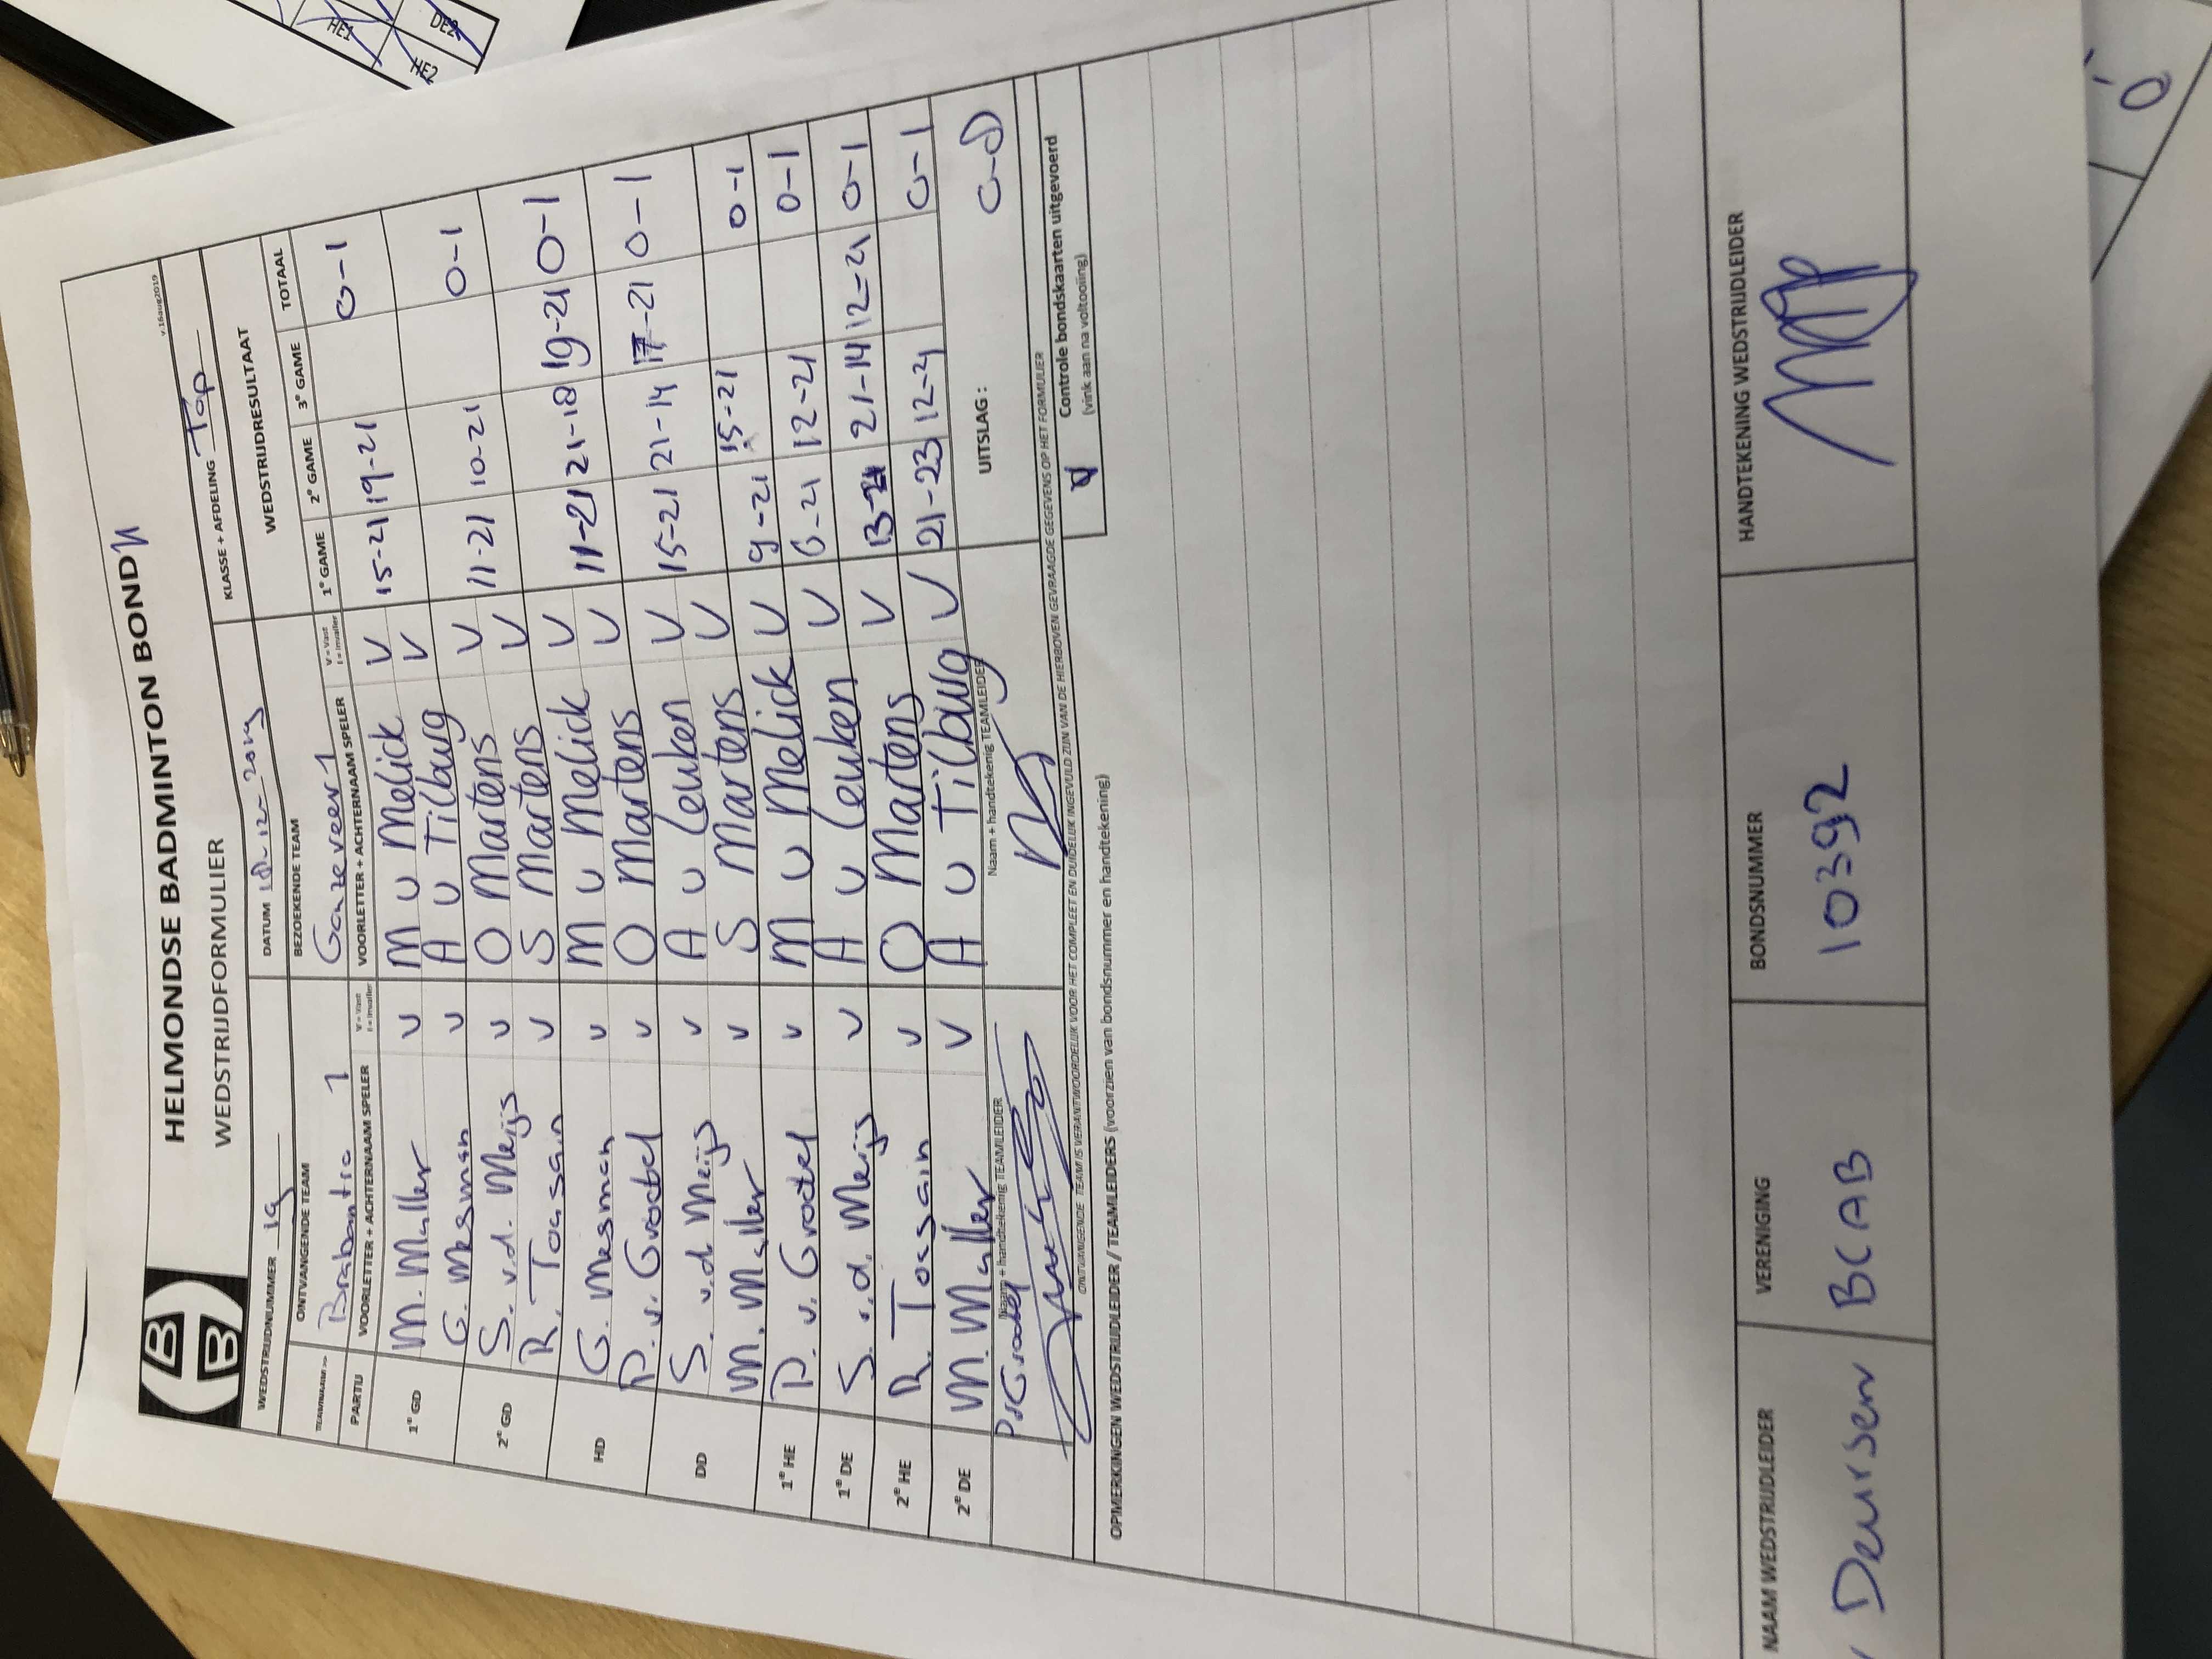 HELMONDSE BADMINTON BOND
WEDSTRIJDFORMULIER
v.16aug2019
WEDSTRIJDNUMMER 19 DATUM 18-12-2019 KLASSE + AFDELING Top
ONTVANGENDE TEAM BEZOEKENDE TEAM WEDSTRIJDRESULTAAT
TEAMNAAM >> Brabantia 1 Ganzeveer 1
PARTIJ VOORLETTER + ACHTERNAAM SPELER V = Vast I = Invaller VOORLETTER + ACHTERNAAM SPELER V = Vast I = Invaller 1e GAME 2e GAME 3e GAME TOTAAL
1e GD M. Maller v M v Melick V 15-21 19-21 0-1
G. Mesman v A v Tilburg V
2e GD S. v.d. Meijs v O Martens V 11-21 10-21 0-1
R. Tossain v S Martens V
HD G. Mesman v M v Melick V 11-21 21-18 19-21 0-1
P. v. Grootel v O Martens V
DD S. v.d. Meijs v A v Leuken V 15-21 21-14 17-21 0-1
M. Maller v S Martens V
1e HE P. v. Grootel v M v Melick V 9-21 15-21 0-1
1e DE S. v.d. Meijs v A v Leuken V 6-21 12-21 0-1
2e HE R. Tossain v O Martens V 13-21 21-14 12-21 0-1
2e DE M. Maller v A v Tilburg V 21-23 12-21 0-1
Naam + handtekenig TEAMLEIDER Naam + handtekenig TEAMLEIDER UITSLAG : 0-8
P v Grootel
ONTVANGENDE TEAM IS VERANTWOORDELIJK VOOR HET COMPLEET EN DUIDELIJK INGEVULD ZIJN VAN DE HIERBOVEN GEVRAAGDE GEGEVENS OP HET FORMULIER
V Controle bondskaarten uitgevoerd
(vink aan na voltooiing)
OPMERKINGEN WEDSTRIJDLEIDER / TEAMLEIDERS (voorzien van bondsnummer en handtekening)
NAAM WEDSTRIJDLEIDER VERENIGING BONDSNUMMER HANDTEKENING WEDSTRIJDLEIDER
Deursen BCAB 10392
HE1 DE2
HE2